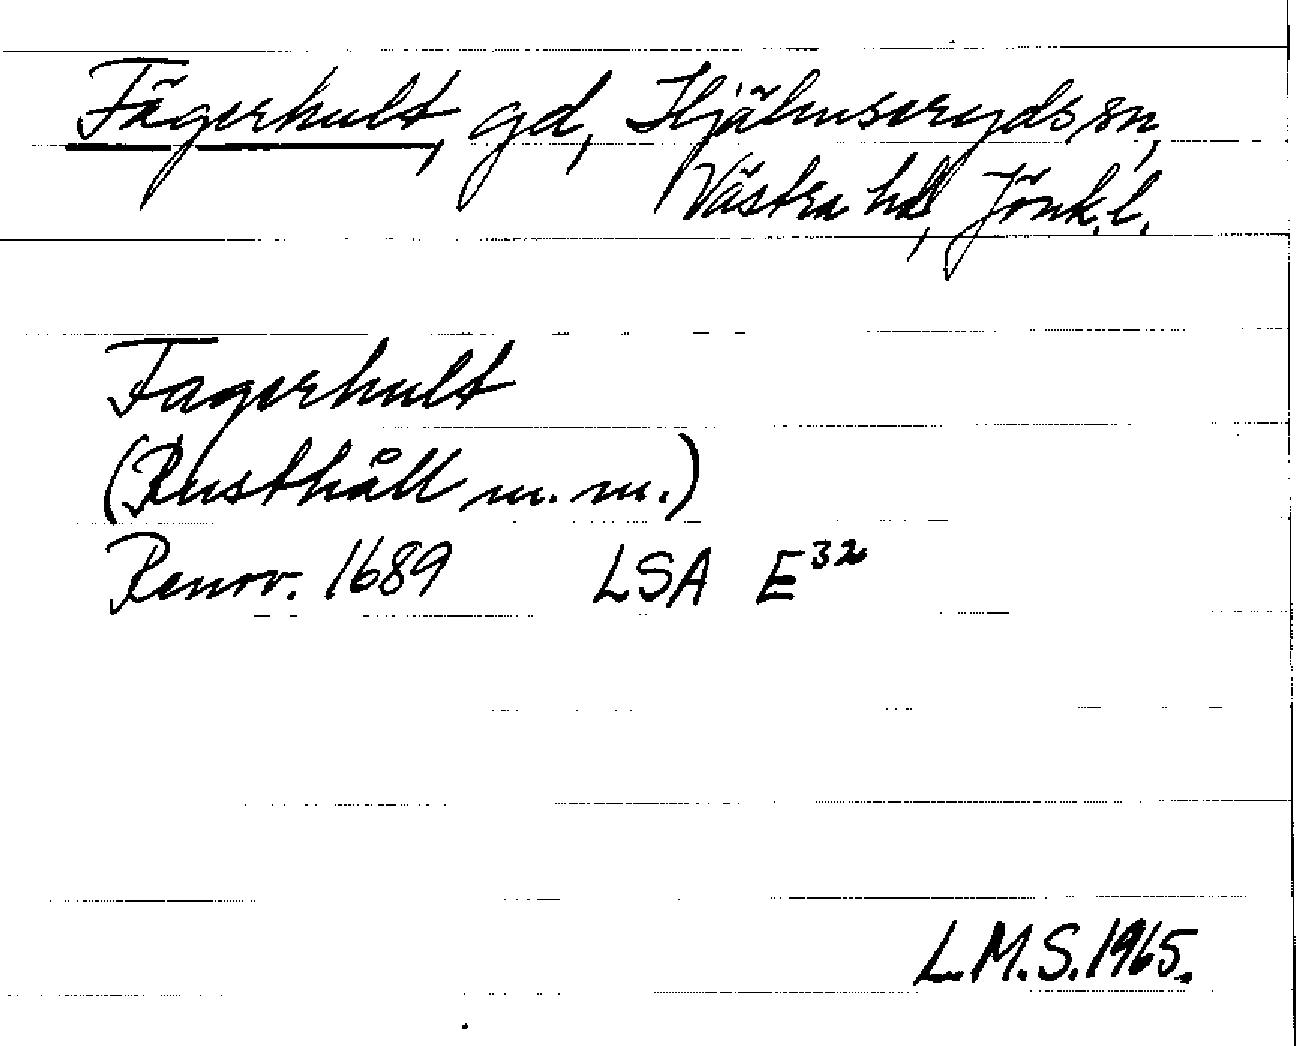 Fägerhult, gd, Hjälmseryds sn,
Västra hd, Jönk. l.
Fagerhult
(Rusthåll m. m.)
Renov. 1689 LSA E³²
L.M.S. 1965.